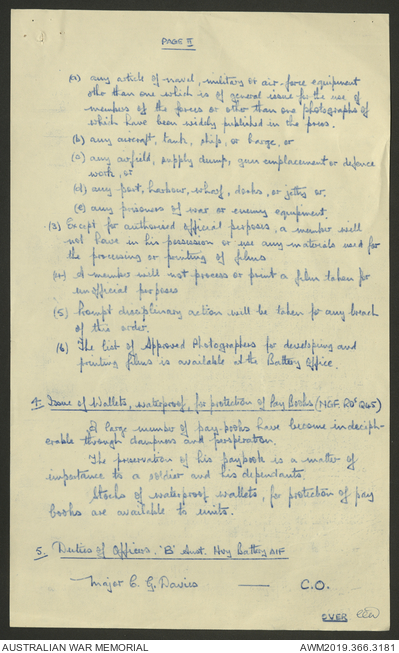 PAGE II
(a) any article of naval, military or air-force equipment
other than one which is of general issue for the use of
members of the forces or other than one photographs of
which have been widely published in the press.
(b) any aircraft, tank, ship, or barge, or
(c) any airfield, supply dump, gun emplacement or defence
work, or
(d) any port, harbour, wharf, docks, or jetty or.
(e) any prisoners of war or enemy equipment.
(3) Except for authorised official purposes, a member will
not have in his possession or use any materials used for
the processing or printing of films
(4) A member will not process or print a film taken for
unofficial purposes
(5) Prompt disciplinary action will be taken for any breach
of this order.
(6) The list of Approved Photographers for developing and
printing films is available at the Battery Office.
4. Issue of Wallets, waterproof, for protection of Pay Books (NGF. RO' Q45)
A large number of pay-books have become indeciph-
erable through dampness and perspiration.
The preservation of his paybook is a matter of
importance to a soldier and his dependants.
Stocks of waterproof wallets, for protection of pay
books are available to units.
5. Duties of Officers, 'B' Aust. Hvy Battery AIF
Major C. G. Davies — C.O.
OVER
AUSTRALIAN WAR MEMORIAL
AWM2019.366.3181